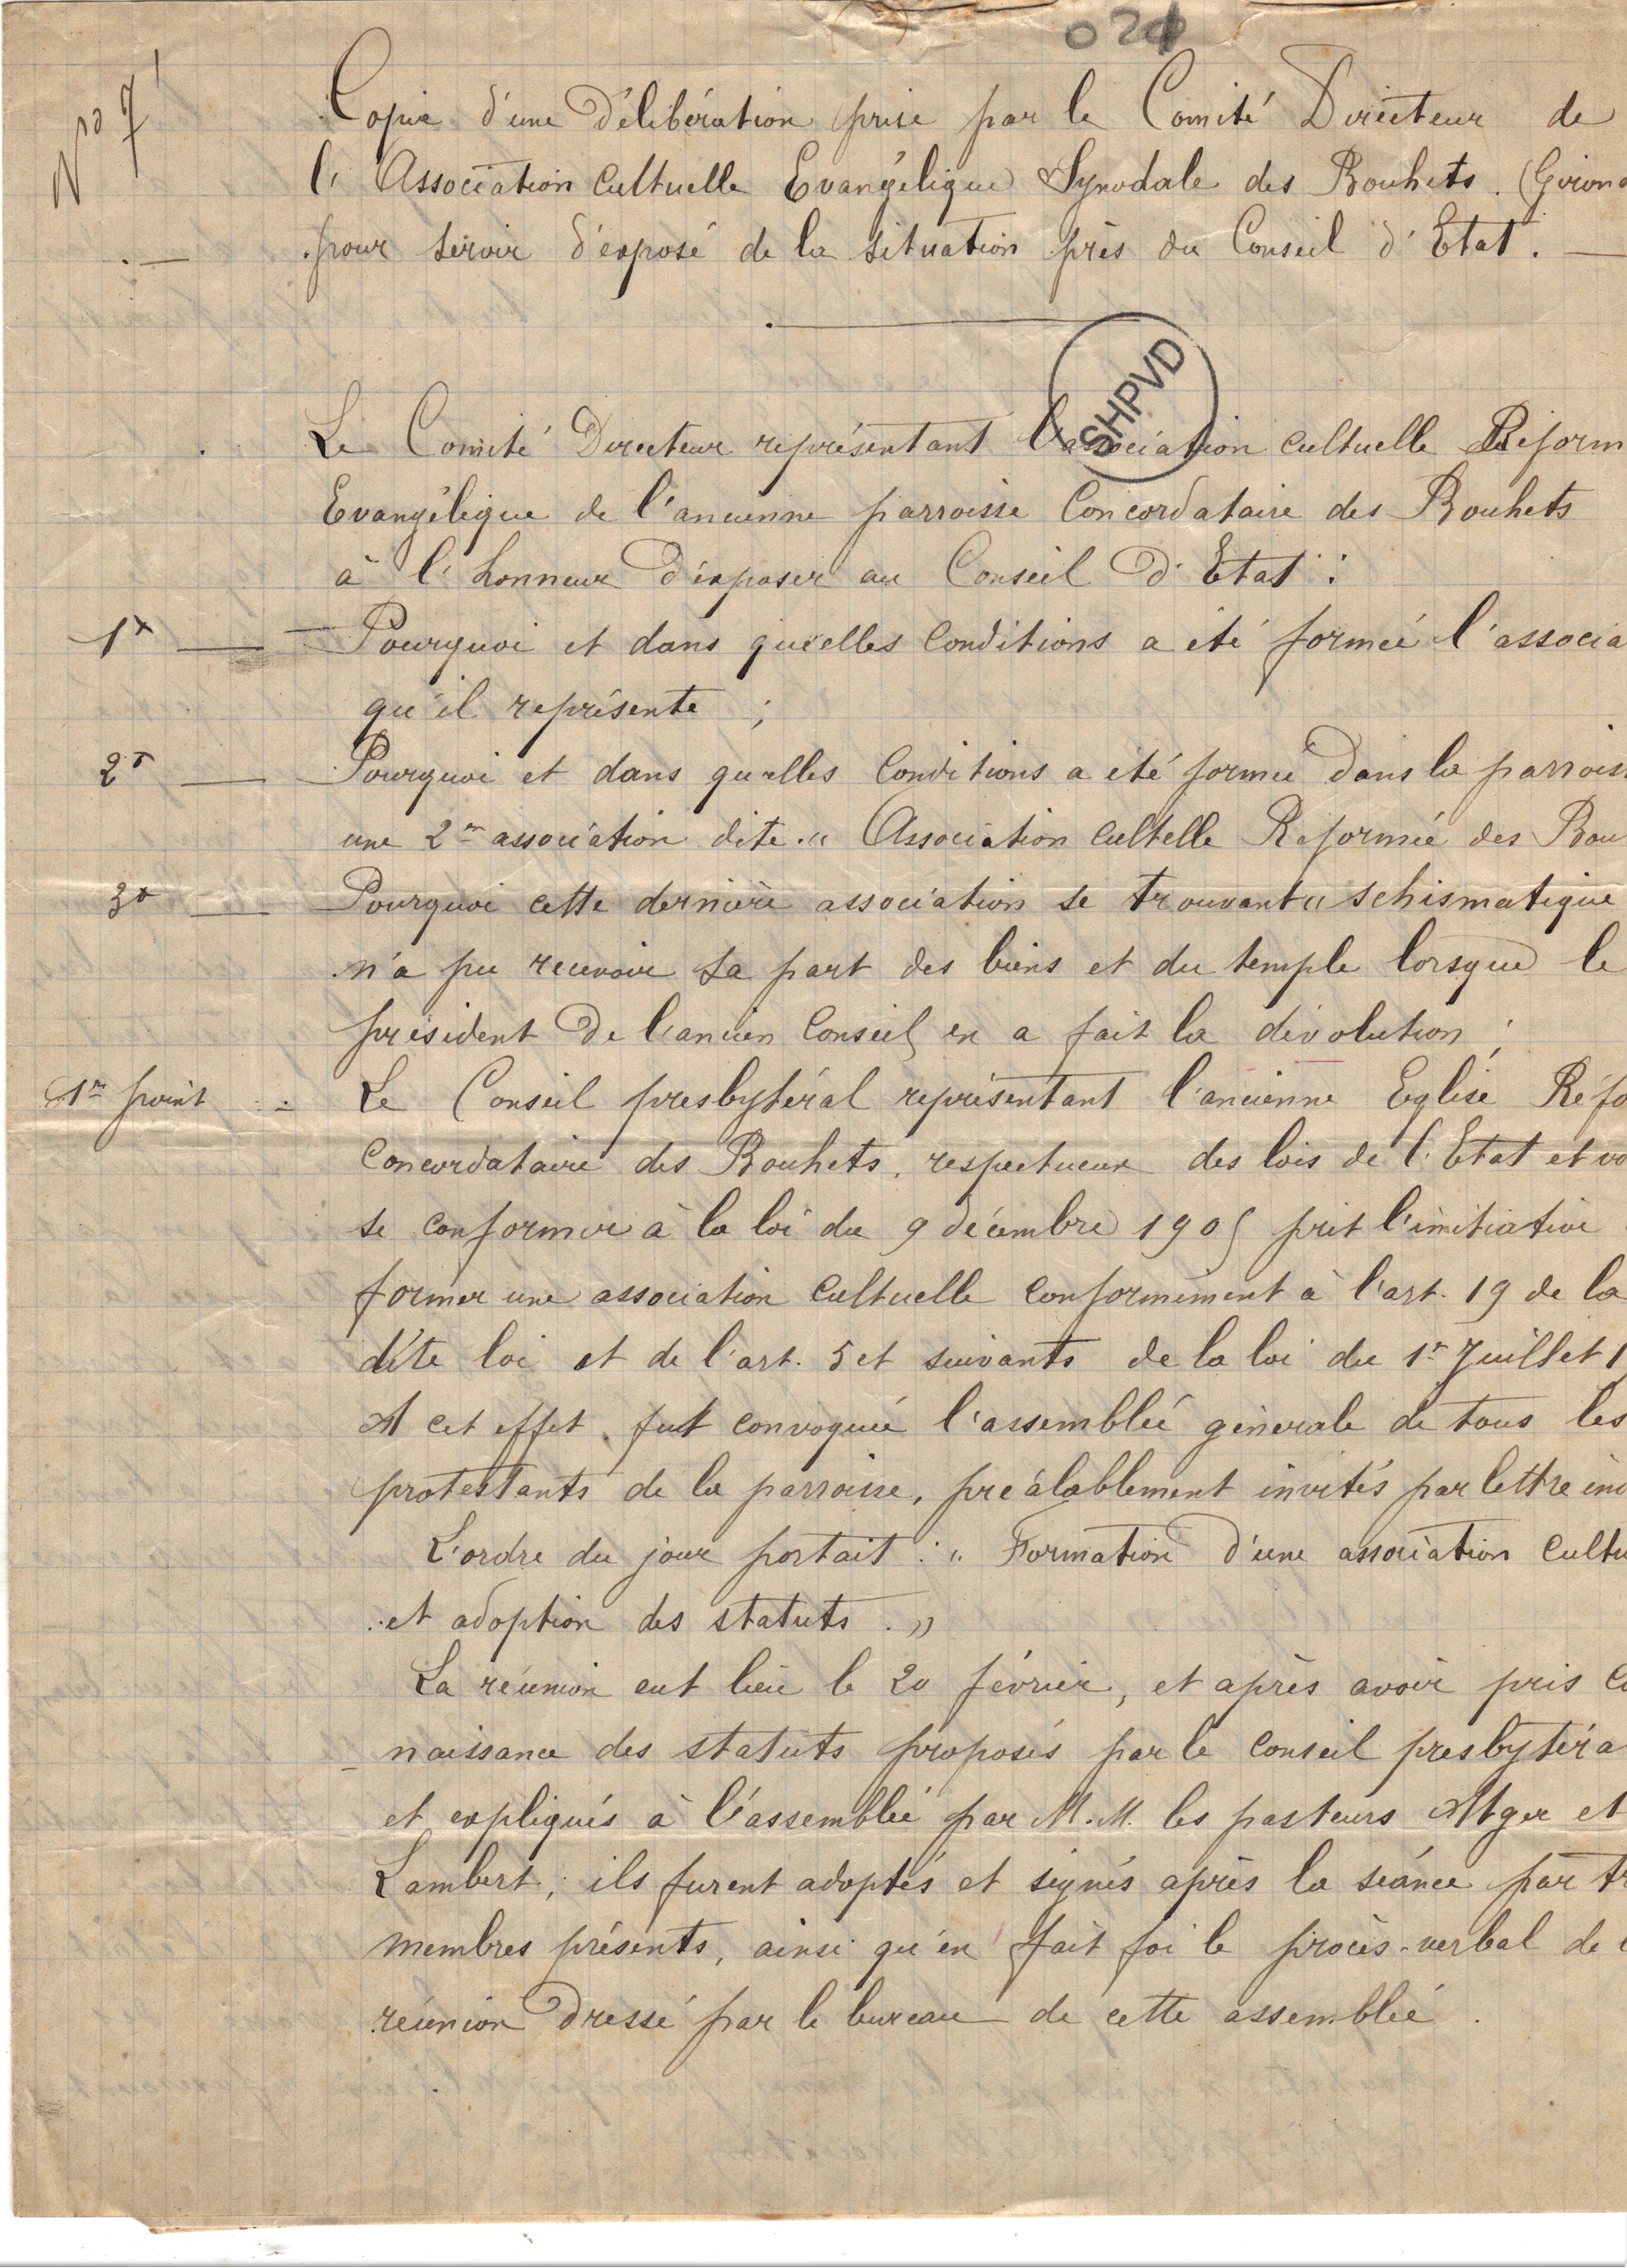 021
No 7
Copie d'une Délibération prise par le Comité Directeur de
l'Association Cultuelle Evangélique Synodale des Bouhets. (Giron
pour servir d'exposé de la situation près du Conseil d'Etat. —
SHPVD
Le Comité Directeur représentant l'association cultuelle Réform
Evangélique de l'ancienne parroisse Concordataire des Bouhets
à l'honneur d'exposer au Conseil d'Etat :
1° — Pourquoi et dans quelles Conditions a été formée l'associa
qu'il représente ;
2° — Pourquoi et dans quelles Conditions a été formée dans la parrois
une 2me association dite. " Association cultelle Réformée des Bou
3° — Pourquoi cette dernière association se trouvant " schismatique
n'a pu recevoir sa part des biens et du temple lorsque le
président de l'ancien Conseil en a fait la dévolution ;
1er point :- Le Conseil presbytéral représentant l'ancienne Eglise Réfo
Concordataire des Bouhets, respectueux des lois de l'Etat et vo
se conformer à la loi du 9 décembre 1905 prit l'initiative
former une association cultuelle conformément à l'art. 19 de la
dite loi et de l'art. 5 et suivants de la loi du 1er Juillet 1
A cet effet, fut convoquée l'assemblée générale de tous les
protestants de la parroisse, préalablement invités par lettre ind
L'ordre du jour portait : " Formation d'une association Cultu
et adoption des statuts. "
La réunion eut lieu le 20 février, et après avoir pris co
naissance des statuts proposés par le Conseil presbytéra
et expliqués à l'assemblée par M.M. les pasteurs Atger et
Lambert, ils furent adoptés et signés après la séance par tr
membres présents, ainsi qu'en fait foi le procès-verbal de
réunion dressé par le bureau de cette assemblée.